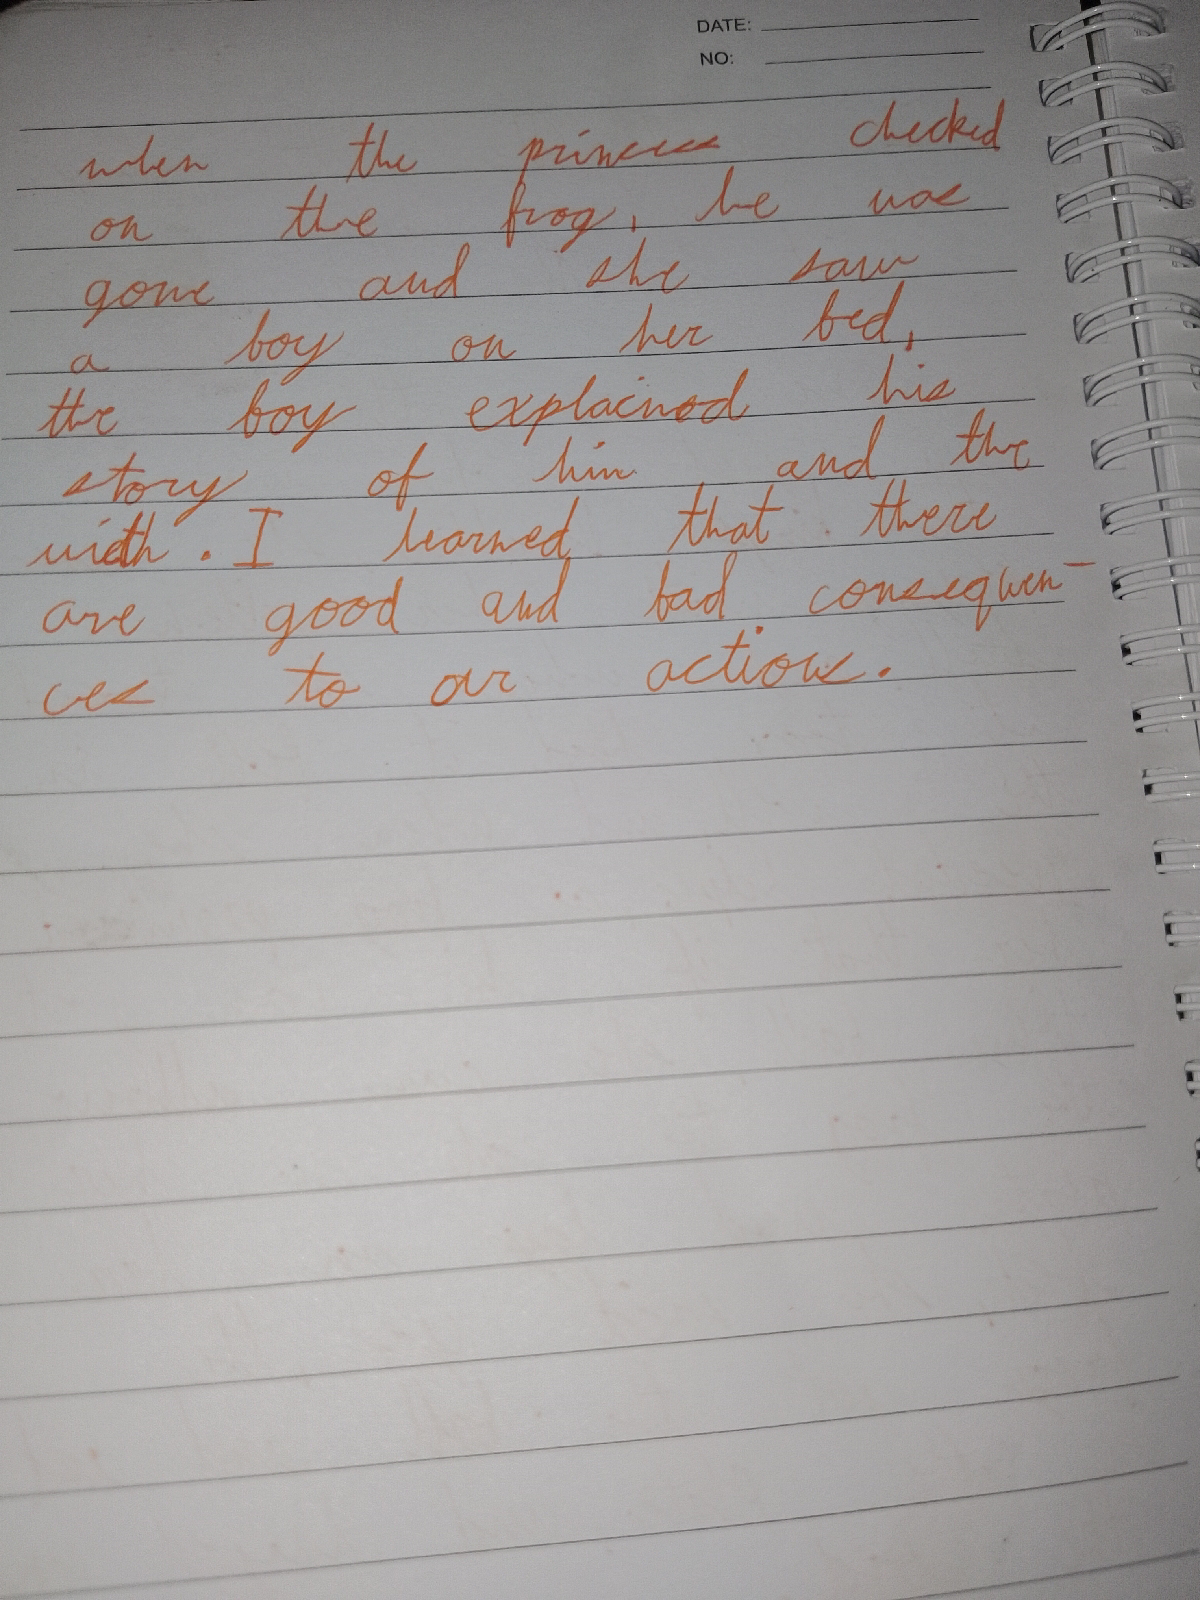 DATE:
NO:
when the princess checked
on the frog, he was
gone and she saw
a boy on her bed,
the boy explained his
story of him and the
widh. I learned that there
are good and bad consequen-
ces to our actions.